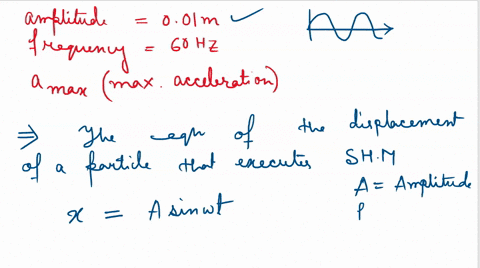 amplitude = 0.01m ✓
frequency = 60 Hz
a max (max. acceleration)
⇒ The eqn of the displacement
of a particle that executes SH.M
A = Amplitude
x = A sin ωt